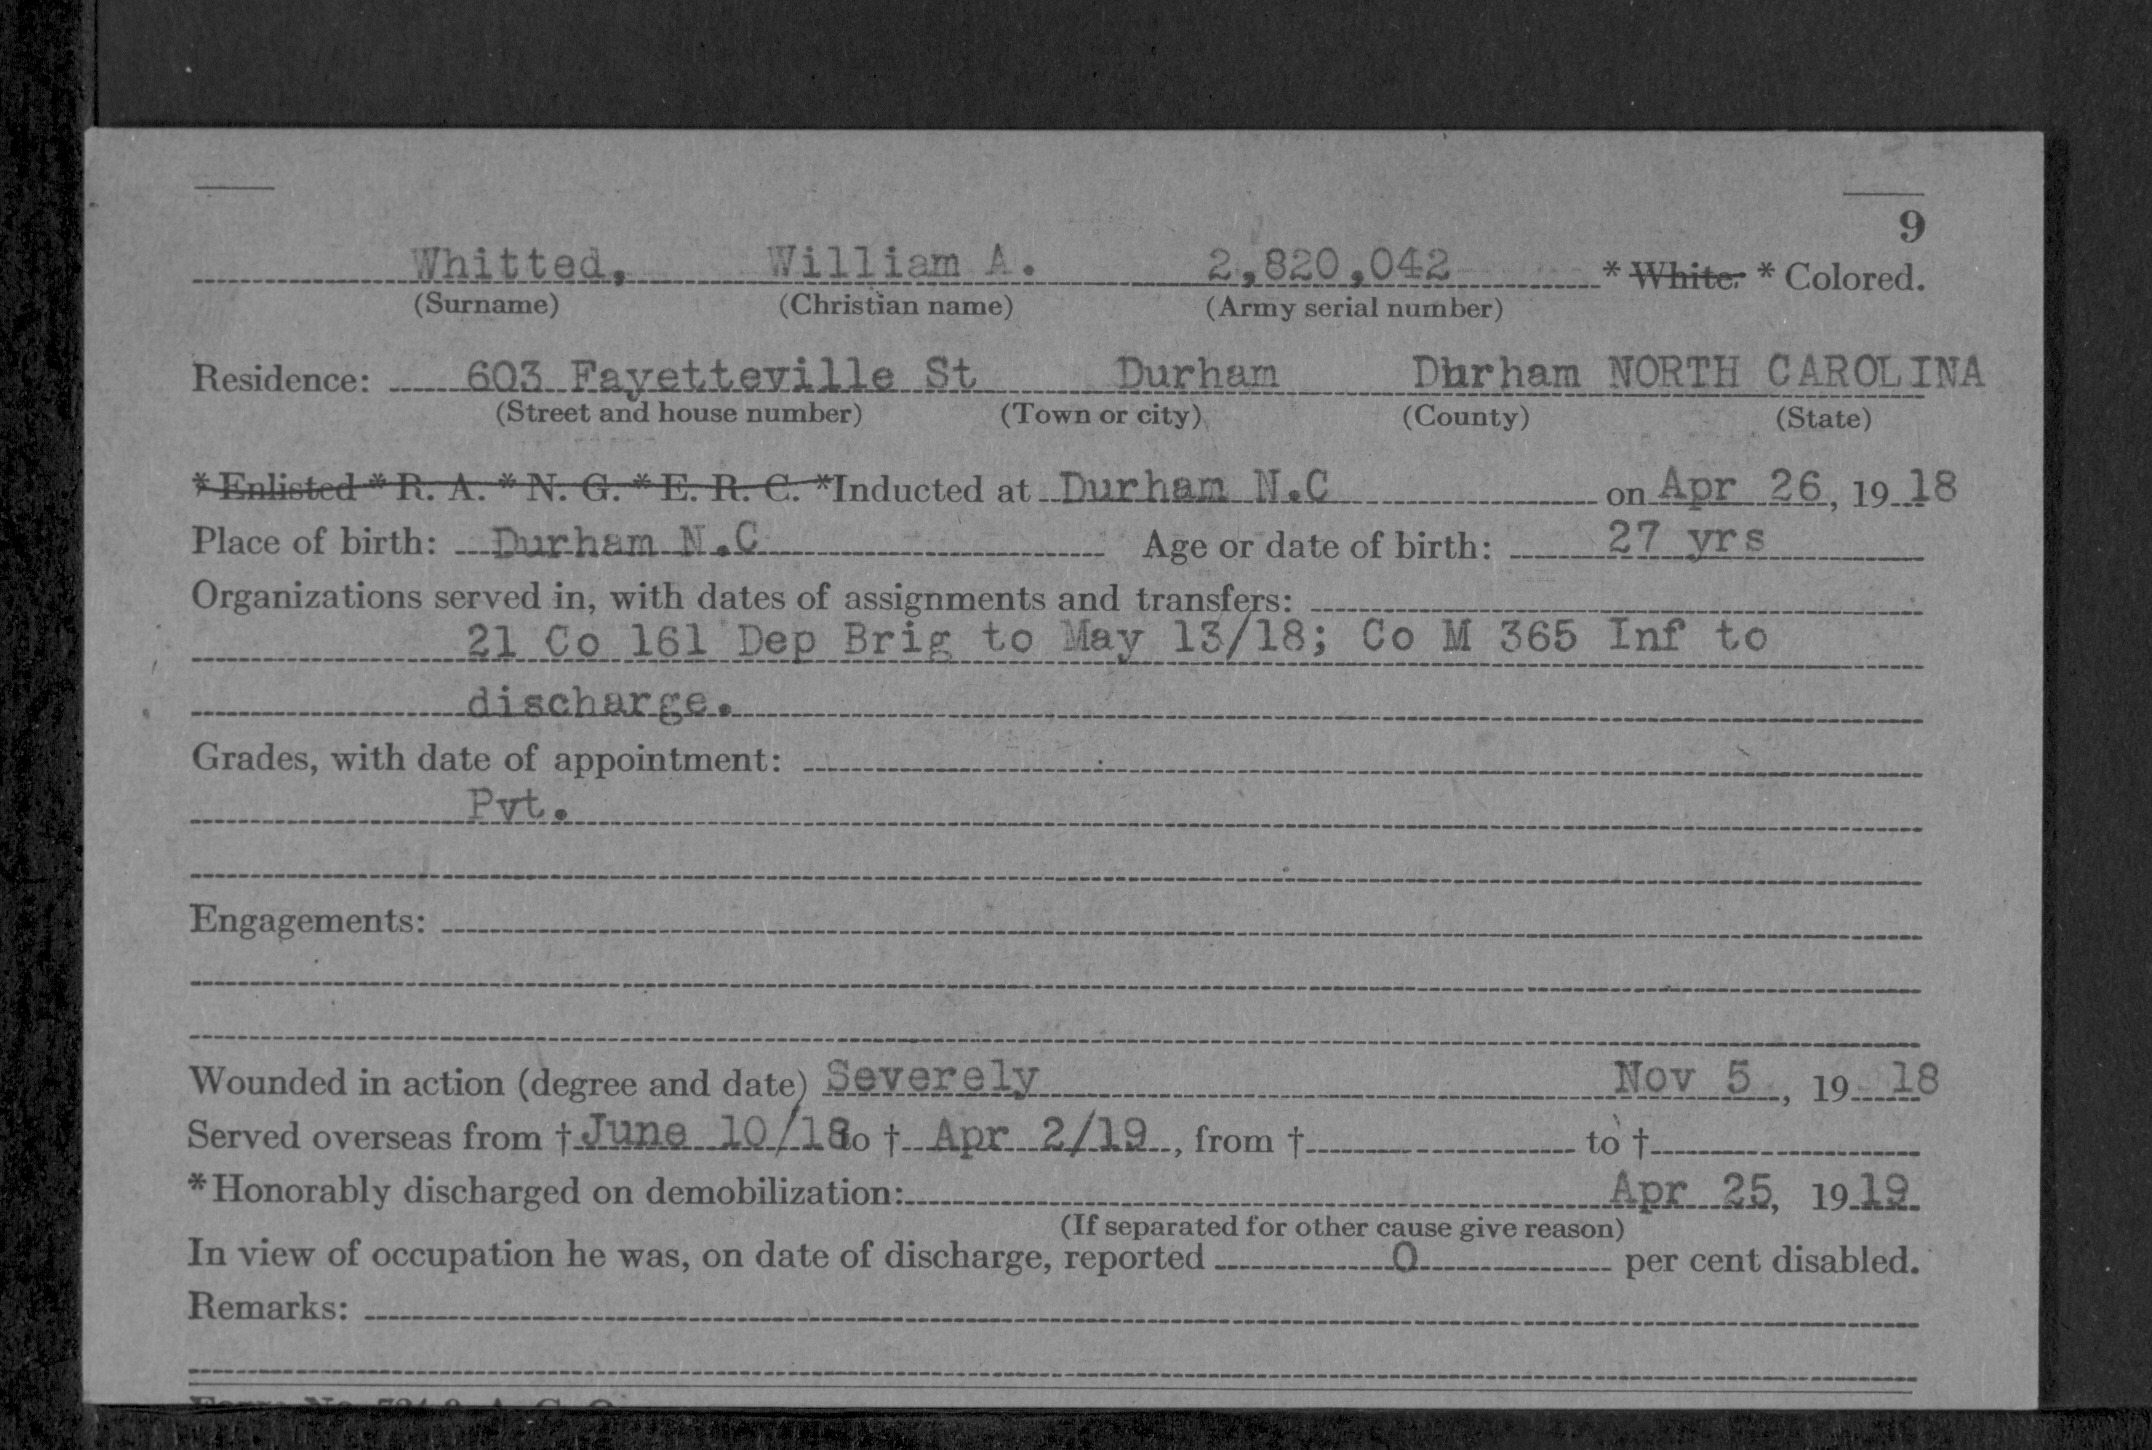 9
Whitted, William A. 2,820,042 * White. * Colored.
(Surname) (Christian name) (Army serial number)
Residence: 603 Fayetteville St Durham Durham NORTH CAROLINA
(Street and house number) (Town or city) (County) (State)
* Enlisted * R. A. * N. G. * E. R. C. *Inducted at Durham N.C on Apr 26, 19 18
Place of birth: Durham N.C Age or date of birth: 27 yrs
Organizations served in, with dates of assignments and transfers:
21 Co 161 Dep Brig to May 13/18; Co M 365 Inf to
discharge.
Grades, with date of appointment:
Pvt.
Engagements:
Wounded in action (degree and date) Severely Nov 5, 19 18
Served overseas from † June 10/18 to † Apr 2/19, from † to †
*Honorably discharged on demobilization: Apr 25, 19 19
(If separated for other cause give reason)
In view of occupation he was, on date of discharge, reported 0 per cent disabled.
Remarks: